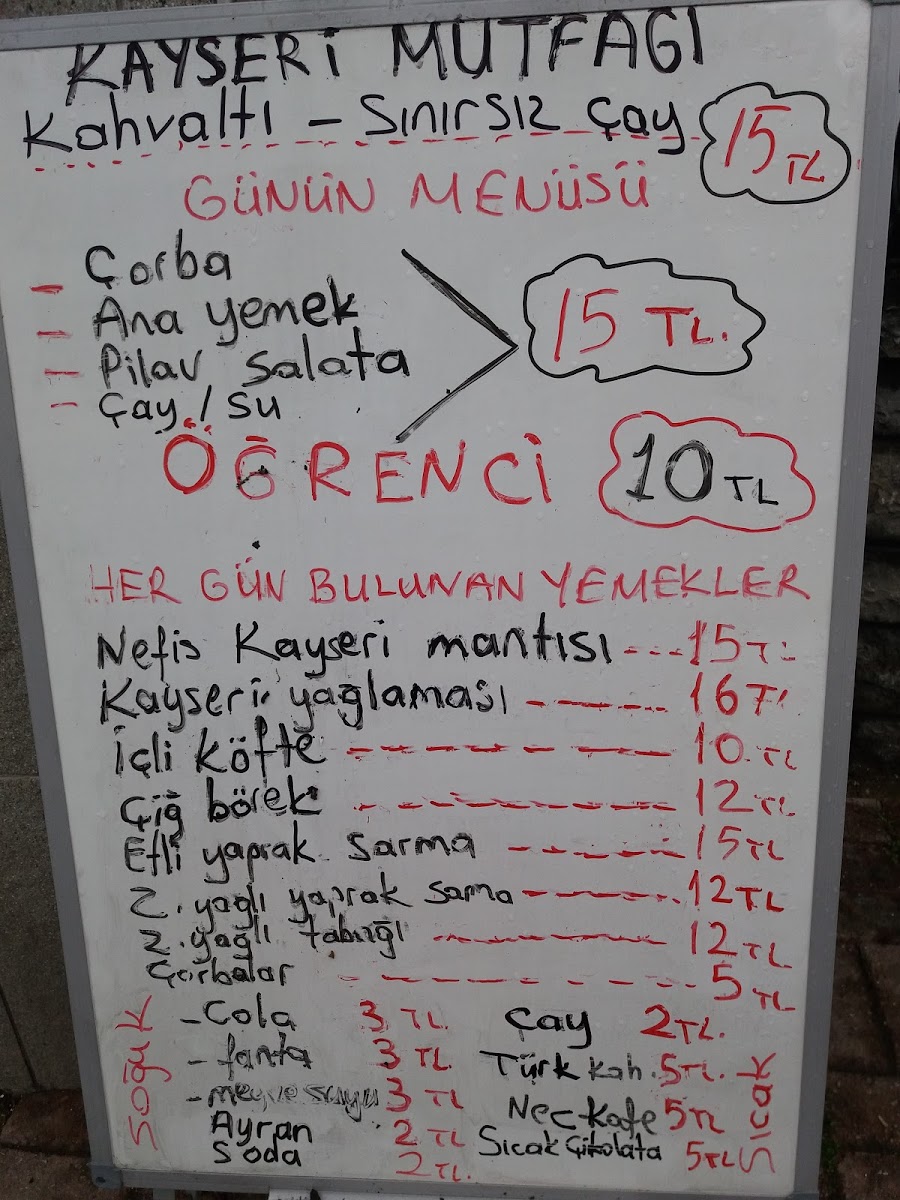 KAYSERİ MUTFAĞI
Kahvaltı - Sınırsız Çay 15 TL
GÜNÜN MENÜSÜ
- Çorba
- Ana yemek
- Pilav salata
- Çay / Su
15 TL.
ÖĞRENCİ 10 TL
HER GÜN BULUNAN YEMEKLER
Nefis Kayseri mantısı ---- 15 TL
Kayseri yağlaması ----- 16 TL
İçli köfte ------- 10 TL
Çiğ börek -------- 12 TL
Etli yaprak sarma ----- 15 TL
Z. yağlı yaprak sarma ----- 12 TL
Z. yağlı tabağı ------ 12 TL
Çorbalar -------- 5 TL
Soğuk
- Cola 3 TL.
- fanta 3 TL
- meyve suyu 3 TL
Ayran 2 TL
Soda 2 TL.
Sıcak
Çay 2 TL.
Türk kah. 5 TL.
Neckafe 5 TL
Sıcak Çikolata 5 TL